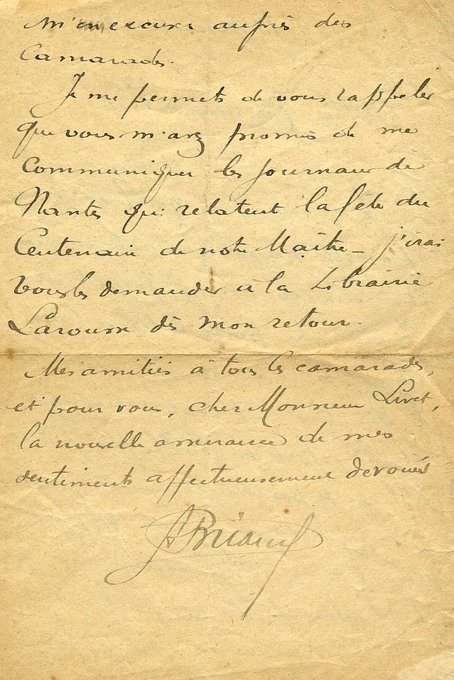 m'en excuser auprès des
Camarades.
Je me permets de vous rappeler
que vous m'avez promis de me
Communiquer les journaux de
Nantes qui relatent la fête du
Centenaire de notre Maître – j'irai
vous les demander à la Librairie
Larousse dès mon retour.
Mes amitiés à tous les camarades,
et pour vous, cher Monsieur Livet,
la nouvelle assurance de mes
sentiments affectueusement dévoués